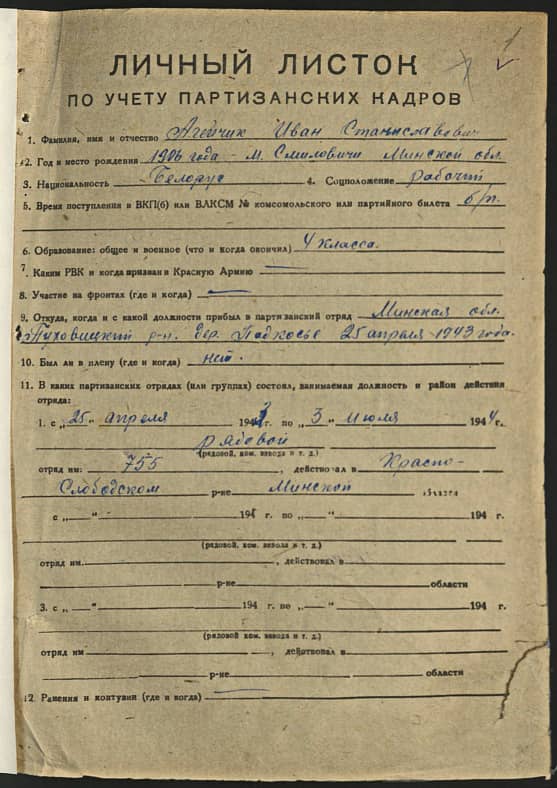 1
ЛИЧНЫЙ ЛИСТОК
ПО УЧЕТУ ПАРТИЗАНСКИХ КАДРОВ
1. Фамилия, имя и отчество Агейчик Иван Станиславович
2. Год и место рождения 1906 года - м. Смиловичи Минской обл.
3. Национальность Белорус 4. Соцположение рабочий
5. Время поступления в ВКП(б) или ВЛКСМ № комсомольского или партийного билета б/п.
6. Образование: общее и военное (что и когда окончил) 4 класса.
7. Каким РВК и когда призван в Красную Армию —
8. Участие на фронтах (где и когда) —
9. Откуда, когда и с какой должности прибыл в партизанский отряд Минская обл.
Пуховицкий р-н. дер. Подкосье 25 апреля 1943 года.
10. Был ли в плену (где и когда) нет.
11. В каких партизанских отрядах (или группах) состоял, занимаемая должность и район действия
отряда:
1. с „25" апреля 1943 г. по „3" июля 1944 г.
рядовой
(рядовой, ком. взвода и т. д.)
отряд им: 755, действовал в Красно-
Слободском р-не Минской области
с „—" 194 г. по „—" 194 г.
(рядовой, ком. взвода и т. д.)
отряд им. , действовал в
р-не области
3. с „—" 194 г. по „—" 194 г.
(рядовой, ком. взвода и т. д.)
отряд им , действовал в
р-не области
12. Ранения и контузии (где и когда) —